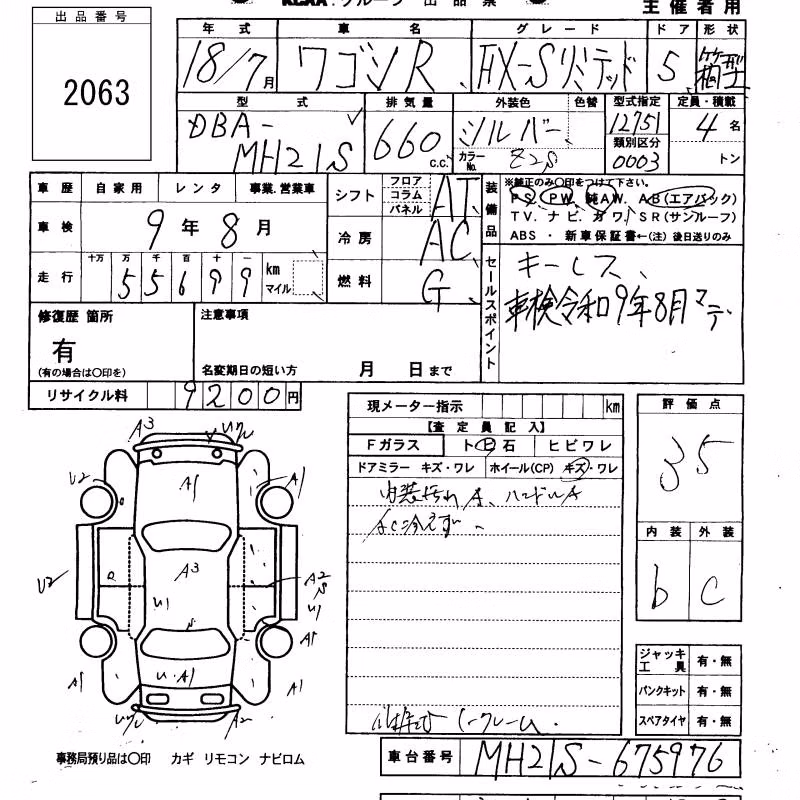 KCAA・グループ 出品票
主催者用
出品番号
2063
年式 車名 グレード ドア 形状
18/7月 ワゴンR FX-Sリミテッド 5 箱型
型式 排気量 外装色 色替 型式指定 定員・積載
DBA-MH21S 660 c.c. シルバー 12751 4名
カラーNo. Z2S 類別区分 0003 トン
車歴 自家用 レンタ 事業.営業車
車検 9年8月
走行 十万 万 千 百 十 一 km マイル
55699
シフト フロア コラム パネル AT
冷房 AC
燃料 G
装備品 ※純正のみ〇印をつけて下さい。
PS. PW. 純AW. AB(エアバック)
TV. ナビ. カワ. SR(サンルーフ)
ABS ・ 新車保証書←(注) 後日送りのみ
セールスポイント
キーレス、
車検令和9年8月マデ
修復歴 箇所 注意事項
有
(有の場合は〇印を) 名変期日の短い方 月 日まで
リサイクル料 9200円
現メーター指示 km
【査定員記入】
Fガラス ト(ビ)石 ヒビワレ
ドアミラー キズ・ワレ ホイール(CP) キズ・ワレ
内装汚れA、ハンドルA
AC冷えず
評価点
35
内装 外装
b C
A3
A1
U2 A1
A3
U2 A2
S
U1 U1
A1
U A1
A1 A1
A2
ジャッキ工具 有・無
パンクキット 有・無
スペアタイヤ 有・無
事務局預り品は〇印 カギ リモコン ナビロム
車台番号 MH21S-675976